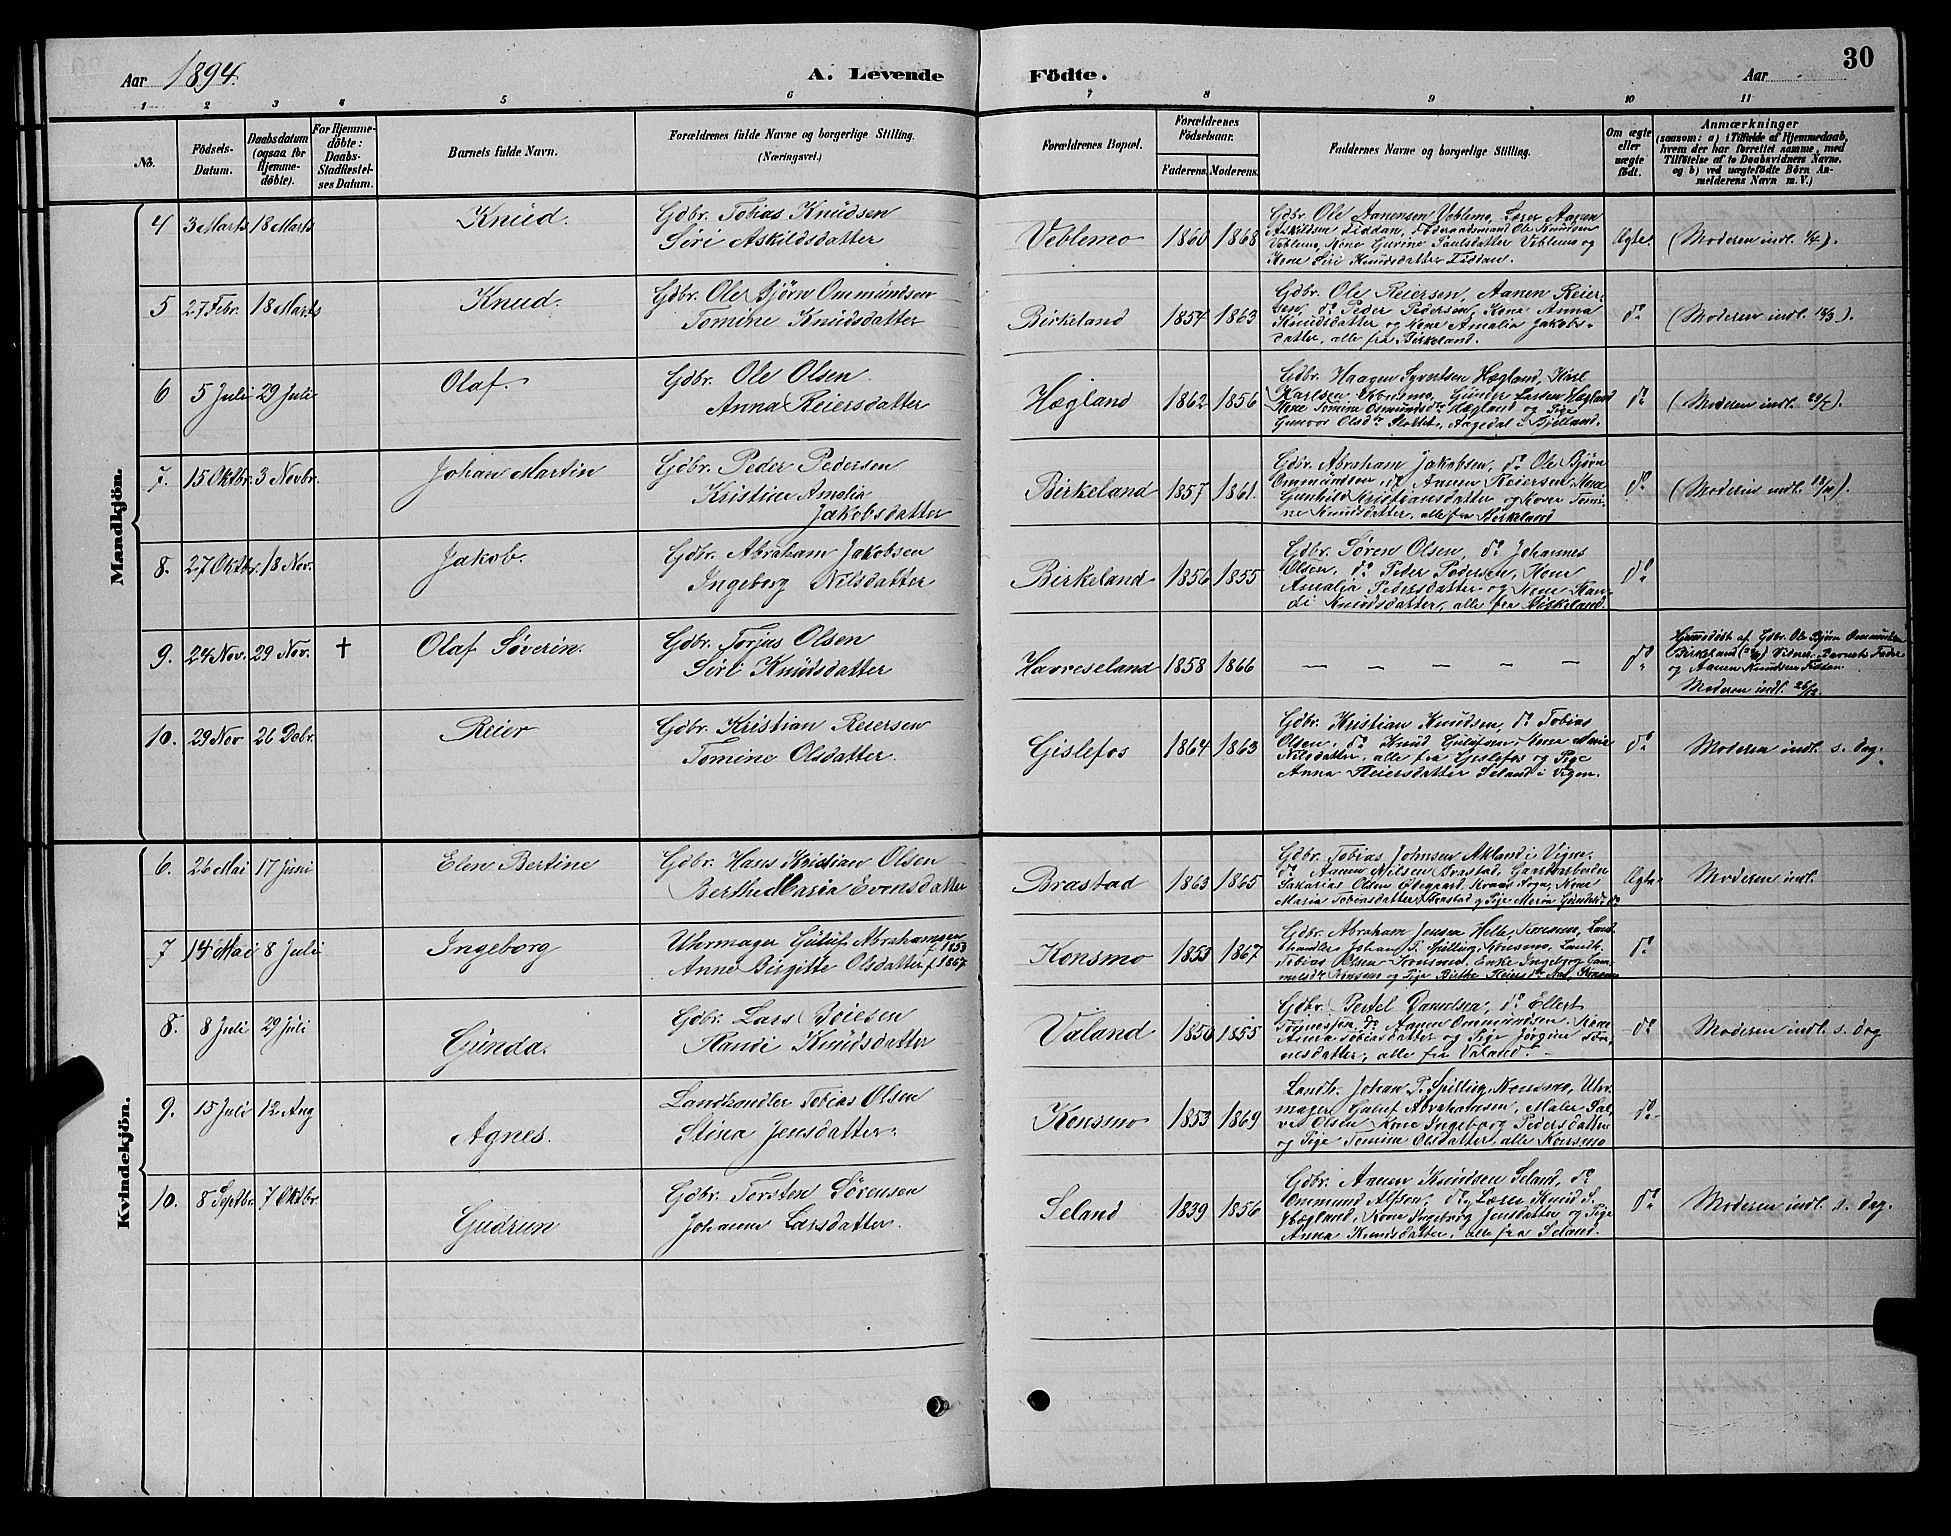 Aar 1894.
A. Levende
Födte.
Aar
30
1 2 3 4 5 6 7 8 9 10 11
No.
Födsels-
Datum.
Daabsdatum
(ogsaa for
Hjemme-
döbte).
For Hjemme-
döbte:
Daabs-
Stadfæstel-
ses Datum.
Barnets fulde Navn.
Forældrenes fulde Navne og borgerlige Stilling.
(Næringsvei.)
Forældrenes Bopæl.
Forældrenes
Födselsaar.
Faderens. Moderens.
Faddernes Navne og borgerlige Stilling.
Om ægte
eller
uægte
født.
Anmærkninger
(saasom: a) i Tilfælde af Hjemmedaab,
hvem der har forrettet samme, med
Tilföielse af to Daabsvidners Navne.
og b) ved uægtefödte Børn An-
melderens Navn m. V.)
Mandkjön.
4 3 Marts 18 Marts Knud. Gdbr. Tobias Knudsen
Siri Askildsdatter
Veblemo 1860 1868
Gdbr. Ole Aanensen Veblemo, Lærer Aanen
Askildsen Liddan, Føderaadsmand Ole Knudsen
Veblemo, Kone Gurine Paulsdatter Veblemo og
Kone Siri Knudsdatter Liddan.
Ægte. (Moderen indl.
5 27 Febr. 18 Marts Knud. Gdbr. Ole Bjørn Ommundsen
Tomine Knudsdatter
Birkeland 1854 1863
Gdbr. Ole Reiersen, Aanen Reier-
sen, do Peder Pedersen, Kone Anna
Knudsdatter og Kone Amalia Jakobs-
datter, alle fra Birkeland.
do (Moderen indl. 18/3).
6 5 Juli 29 Juli Olaf. Gdbr. Ole Olsen
Anna Reiersdatter
Hægland 1862 1856
Gdbr. Haagen Syvertsen Hægland, Karl
Karlsen Konsmo, Gunder Larsen Hægland
Kone Tomine Osmundsdr Hægland og Pige
Gunvor Olsdr Slottet, Aagedal i Bjelland.
do (Moderen indl. 29/7).
7. 15 Oktbr. 3 Novbr. Johan Martin Gdbr. Peder Pedersen
Kristine Amalia
Jakobsdatter
Birkeland 1857 1861.
Gdbr. Abraham Jakobsen, do Ole Bjørn
Ommundsen, do Aanen Reiersen, Kone
Gunhild Kristiansdatter og Kone Tomi-
ne Knudsdatter, alle fra Birkeland
do (Moderen indl.
8. 27 Oktbr. 18 Nov. Jakob. Gdbr. Abraham Jakobsen
Ingeborg Nilsdatter
Birkeland 1856 1855
Gdbr. Søren Olsen, do Johannes
Olsen, do Peder Pedersen, Kone
Amalia Pedersdatter og Kone Ran-
di Knudsdatter, alle fra Birkeland.
do
9. 24 Nov. 29 Nov. † Olaf Søverin. Gdbr. Torjus Olsen
Siri Knudsdatter
Havreseland 1858 1866 — — — — —
do Hjemmedøbt af Gdbr. Ole Bjørn Ommundsen
Birkeland Vidner: Barnets Fader
og Aanen Knudsen
Moderen indl. 26/12.
10. 29 Nov 26 Debr. Reier Gdbr. Kristian Reiersen
Tomine Olsdatter.
Gislefos 1864 1863
Gdbr. Kristian Knudsen, do Tobias
Olsen, do Knud Gulufsen, Kone Marie
Nilsdatter, alle fra Gislefos og Pige
Anna Reiersdatter Seland i Vigm.
do Moderen indl. s. dag.
Kvindekjön.
6. 26 Mai 17 Juni Elen Bertine Gdbr. Hans Kristian Olsen
Berthe Maria Evensdatter
Brastad 1863 1865
Gdbr. Tobias Johnsen Akland i Vigm.
do Aanen Nilsen Brastad, Garskarbeider
Sakarias Olsen Ødegaard, Sogn, Kone
Maria Tobiasdatter Brastad og Pige Maria
Ægte Moderen indl.
7 14 Mai 8 Juli Ingeborg Uhrmager Guluf Abrahamsen f. 1853
Anne Birgitte Olsdatter f 1867
Konsmo 1853 1867
Gdbr. Abraham Jensen Helle, Konsmo, Land-
handler Johan P. Spilling, Konsmo, Landh.
Tobias Olsen Konsmo, Enke Ingeborg
Konsmo og Pige Birthe Reiersdr
do
8. 8 Juli 29 Juli Gunda. Gdbr. Lars Boiesen
Randi Knudsdatter
Valand 1850 1855
Gdbr. Bertel Danielsen, do Ellert
Tønnessen, do Aanen Ommundsen, Kone
Anna Tobiasdatter og Pige Jørgine Tøn-
nesdatter, alle fra Valand.
do Moderen indl. s. dag
9. 15 Juli 12. Aug Agnes. Landhandler Tobias Olsen
Stina Jensdatter.
Konsmo 1853 1869
Landh. Johan P. Spilling, Konsmo, Uhr-
mager Guluf Abrahamsen, Maler Sal-
ve Olsen, Kone Ingeborg Pedersdatter
og Pige Tomine Olsdatter, alle Konsmo
do
10. 8 Septbr. 7 Oktbr. Gudrun Gdbr. Torsten Sørensen
Johanne Larsdatter.
Seland 1839 1856
Gdbr. Aanen Knudsen Seland, do
Ommund Alfsen, do, Lærer Knud S.
Hægland, Kone Ingeborg Jensdatter og Pige
Anna Knudsdatter, alle fra Seland.
do Moderen indl. s. dag.